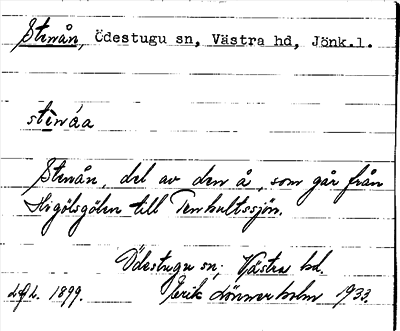 Stenån, Ödestugu sn, Västra hd, Jönk.l.
stènáa
Stenån, del av den å, som går från
Stigölsgölen till Tenhultssjön.
Ödestugu sn; Västra hd.
1899. Erik Lönnerholm 1933.